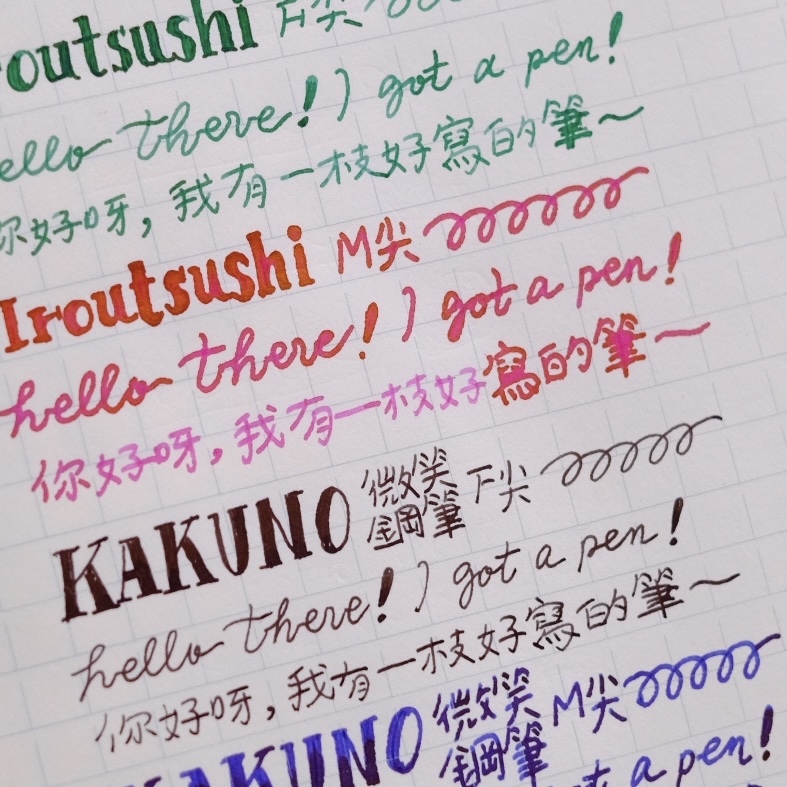 routsushi F尖
ello there! I got a pen!
你好呀，我有一枝好寫的筆～
Iroutsushi M尖
hello there! I got a pen!
你好呀，我有一枝好寫的筆～
KAKUNO 微笑鋼筆 F尖
hello there! I got a pen!
你好呀，我有一枝好寫的筆～
KAKUNO 微笑鋼筆 M尖
a pen!